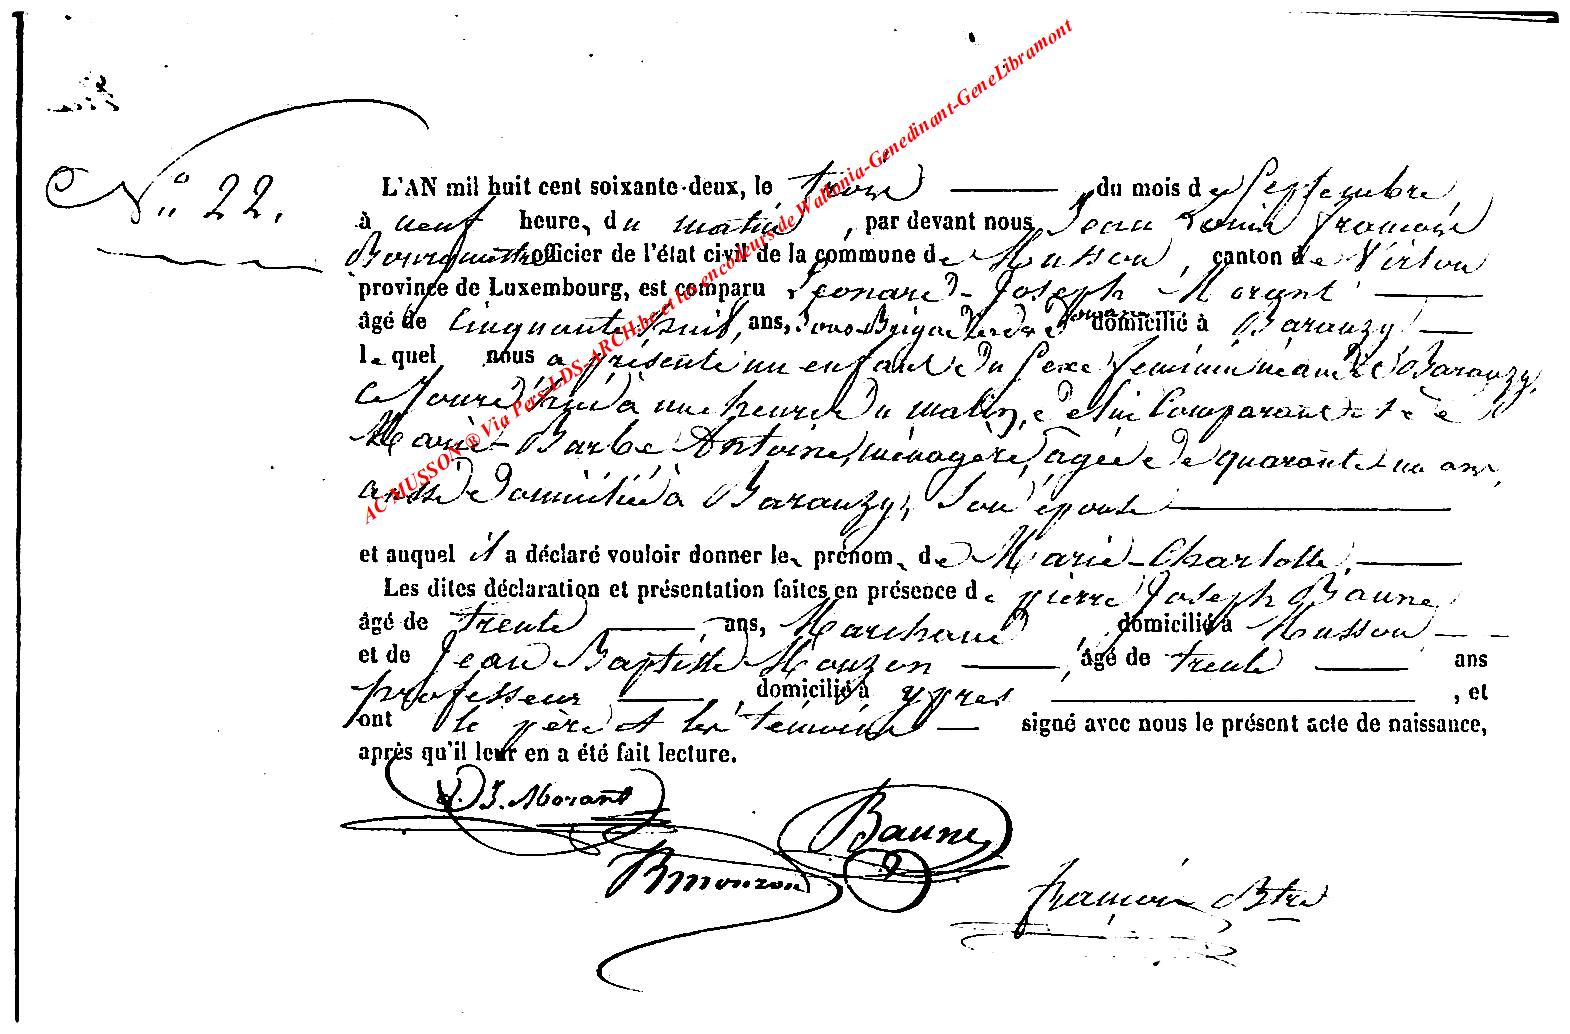 N.° 22.
L'AN mil huit cent soixante-deux, le trois du mois de Septembre,
à neuf heures du matin, par devant nous Jean Louis François
Bourgmestre officier de l'état civil de la commune de Musson, canton de Virton
province de Luxembourg, est comparu Léonard-Joseph Morant
âgé de cinquante huit ans, Sous Brigadier de Douane domicilié à Baranzy
lequel nous a présenté un enfant du sexe féminin né à Baranzy,
ce jourd'hui à une heure du matin, de lui Comparant et de
Marie-Barbe Antoine, ménagère, agée de quarante un ans,
aussi domiciliée à Baranzy, son épouse
et auquel il a déclaré vouloir donner les prénoms de Marie-Charlotte.
Les dites déclaration et présentation faites en présence de pierre Joseph Baune
âgé de trente ans, Marchand, domicilié à Musson
et de Jean Baptiste Mouzon, âgé de trente ans
professeur, domicilié à ypres, et
ont le père et les témoins signé avec nous le présent acte de naissance,
après qu'il leur en a été fait lecture.
L. J. Morant
Baune
Bmouzon
françois Btre
AC MUSSON ® Via Pers-LDS-ARCH.be et les encodeurs de Wallonia-Genedinant-GeneLibramont